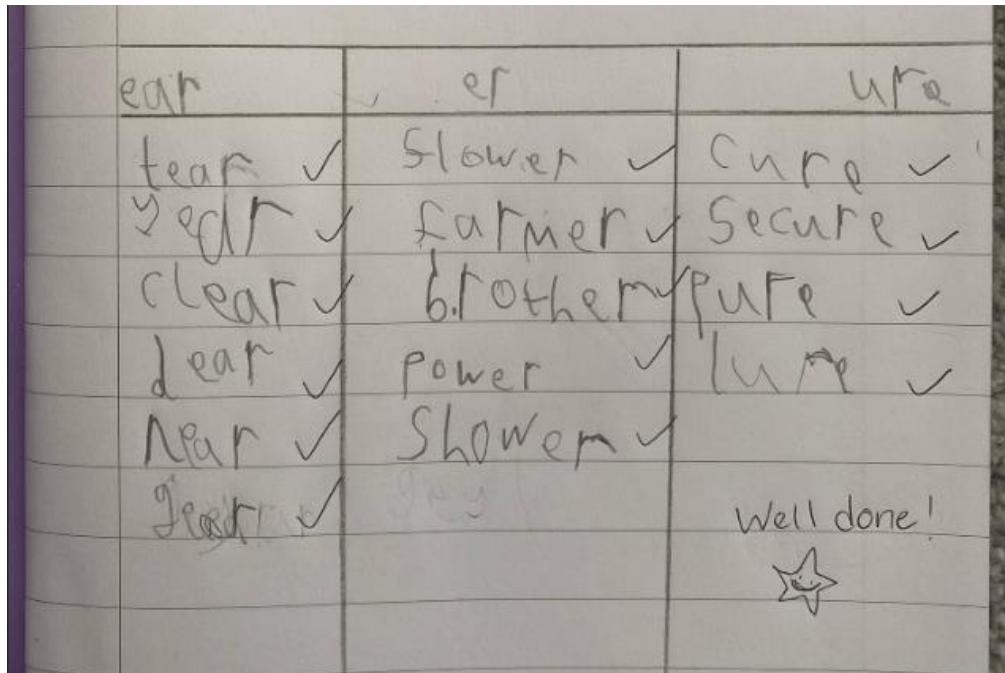 ear er ure
tear ✓ flower ✓ cure ✓
year ✓ farmer ✓ secure ✓
clear ✓ brother ✓ pure ✓
dear ✓ power ✓ lure ✓
near ✓ Shower ✓
gear ✓
Well done!